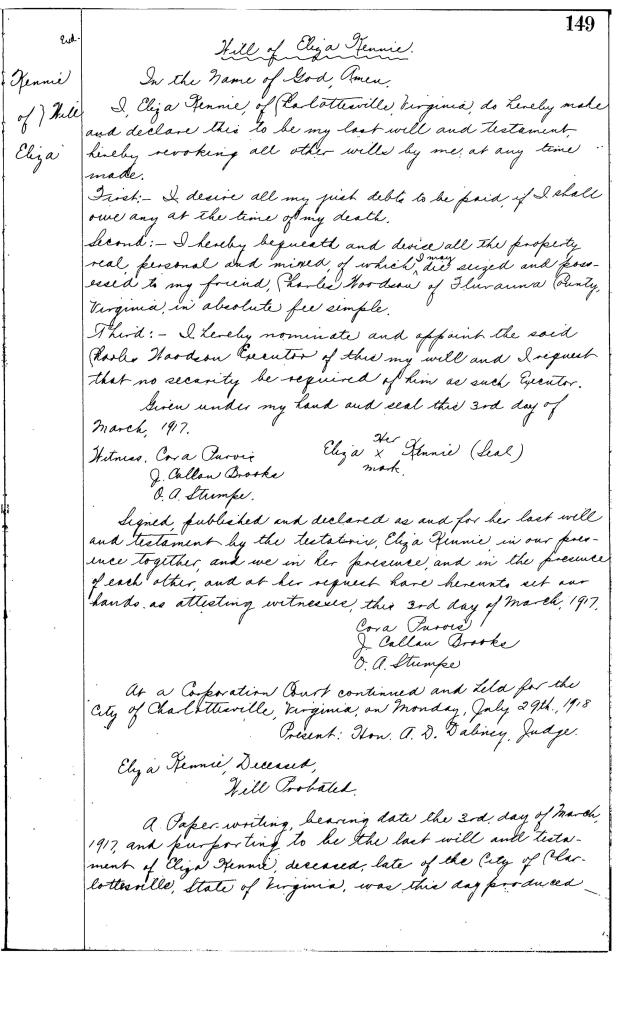 149
Exd.
Will of Eliza Kennie.
Kennie
of } Will
Eliza
In the Name of God, Amen.
I, Eliza Kennie, of Charlottesville, Virginia, do hereby make
and declare this to be my last will and testament,
hereby revoking all other wills by me, at any time
made.
First:- I desire all my just debts to be paid, if I shall
owe any at the time of my death.
Second:- I hereby bequeath and devise all the property
real, personal and mixed, of which I may die seized and poss-
essed to my friend, Charles Woodson of Fluvanna County,
Virginia, in absolute fee simple.
Third:- I hereby nominate and appoint the said
Charles Woodson Executor of this my will and I request
that no security be required of him as such Executor.
Given under my hand and seal this 3rd day of
March, 1917.
Witness. Cora Purvis
J. Callan Brooks
O. A. Stumpe.
Her
Eliza x Kennie (Seal)
mark.
Signed, published and declared as and for her last will
and testament by the testatrix, Eliza Kennie, in our pres-
ence together, and we in her presence, and in the presence
of each other, and at her request have hereunto set our
hands as attesting witnesses, this 3rd day of March, 1917.
Cora Purvis
J. Callan Brooks
O. A. Stumpe
At a Corporation Court continued and held for the
City of Charlottesville, Virginia, on Monday, July 29th, 1918
Present: Hon. A. D. Dabney, Judge.
Eliza Kennie, Deceased,
Will Probated.
A Paper-writing, bearing date the 3rd, day of March,
1917, and purporting to be the last will and testa-
ment of Eliza Kennie, deceased, late of the City of Char-
lottesville, State of Virginia, was this day produced